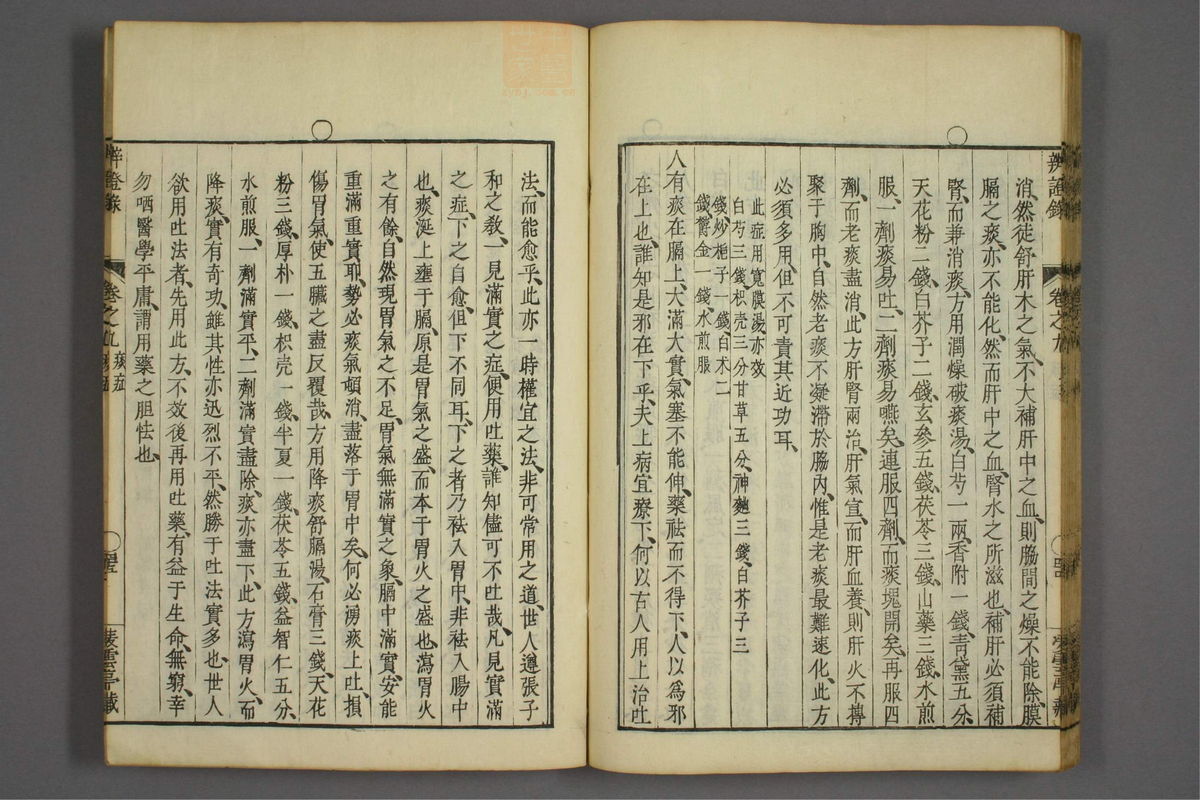 辨證錄 卷之九
消、然徒舒肝木之氣、不大補肝中之血、則脇間之燥不能除、膜
膈之痰、亦不能化、然而肝中之血、腎水之所滋也、補肝必須補
腎、而兼消痰、方用潤燥破痰湯、白芍一兩、香附一錢、青黛五分、
天花粉二錢、白芥子二錢、玄參五錢、茯苓三錢、山藥三錢、水煎
服、一劑痰易吐、二劑痰易嚥矣、連服四劑、而痰塊開矣、再服四
劑、而老痰盡消、此方肝腎兩治、肝氣宣、而肝血養、則肝火不摶
聚于胸中、自然老痰不凝滯於脇內、惟是老痰最難速化、此方
必須多用、但不可責其近功耳、
此症用寬膜湯亦效
白芍三錢、枳壳三分甘草五分、神麯三錢、白芥子三
錢、炒梔子一錢、白朮二
錢、鬱金一錢、水煎服
人有痰在膈上、大滿大實、氣塞不能伸、藥祛而不得下、人以為邪
在上也、誰知是邪在下乎、夫上病宜療下、何以古人用上治吐
法、而能愈乎、此亦一時權宜之法、非可常用之道、世人遵張子
和之教、一見滿實之症、便用吐藥、誰知儘可不吐哉、凡見實滿
之症、下之自愈、但下不同耳、下之者乃祛入胃中、非祛入腸中
也、痰涎上壅于膈、原是胃氣之盛、而本于胃火之盛也、瀉胃火
之有餘、自然現胃氣之不足、胃氣無滿實之象、膈中滿實、安能
重滿重實耶、勢必痰氣頓消、盡落于胃中矣、何必湧痰上吐、損
傷胃氣、使五臟之盡反覆哉、方用降痰舒膈湯、石膏三錢、天花
粉三錢、厚朴一錢、枳壳一錢、半夏一錢、茯苓五錢、益智仁五分、
水煎服、一劑滿實平、二劑滿實盡除、痰亦盡下、此方瀉胃火、而
降痰、實有奇功、雖其性亦迅烈不平、然勝于吐法實多也、世人
欲用吐法者、先用此方、不效後再用吐藥、有益于生命、無窮、幸
勿哂醫學平庸、謂用藥之胆怯也、
辨證錄 卷之九 痰症